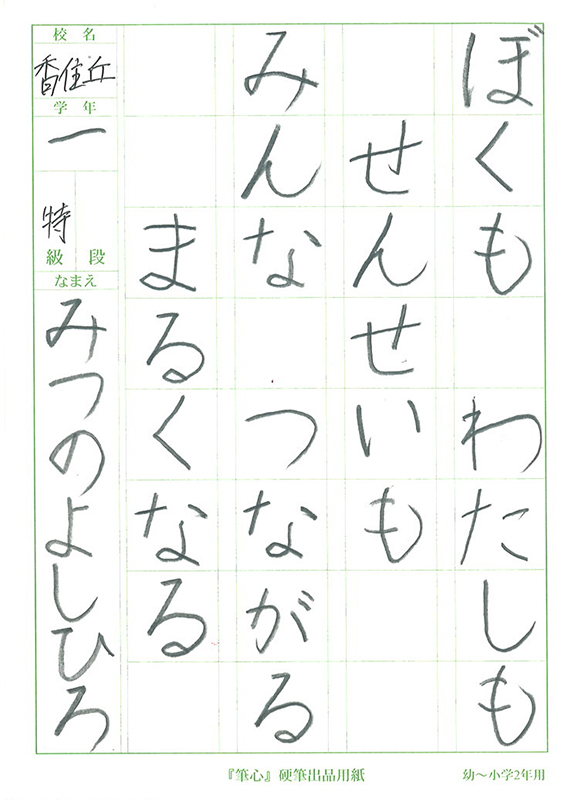 ぼくも　わたしも
せんせいも
みんな　つながる
まるくなる
校名
香住丘
学年
一
特
級　段
なまえ
みつのよしひろ
『筆心』硬筆出品用紙
幼〜小学2年用